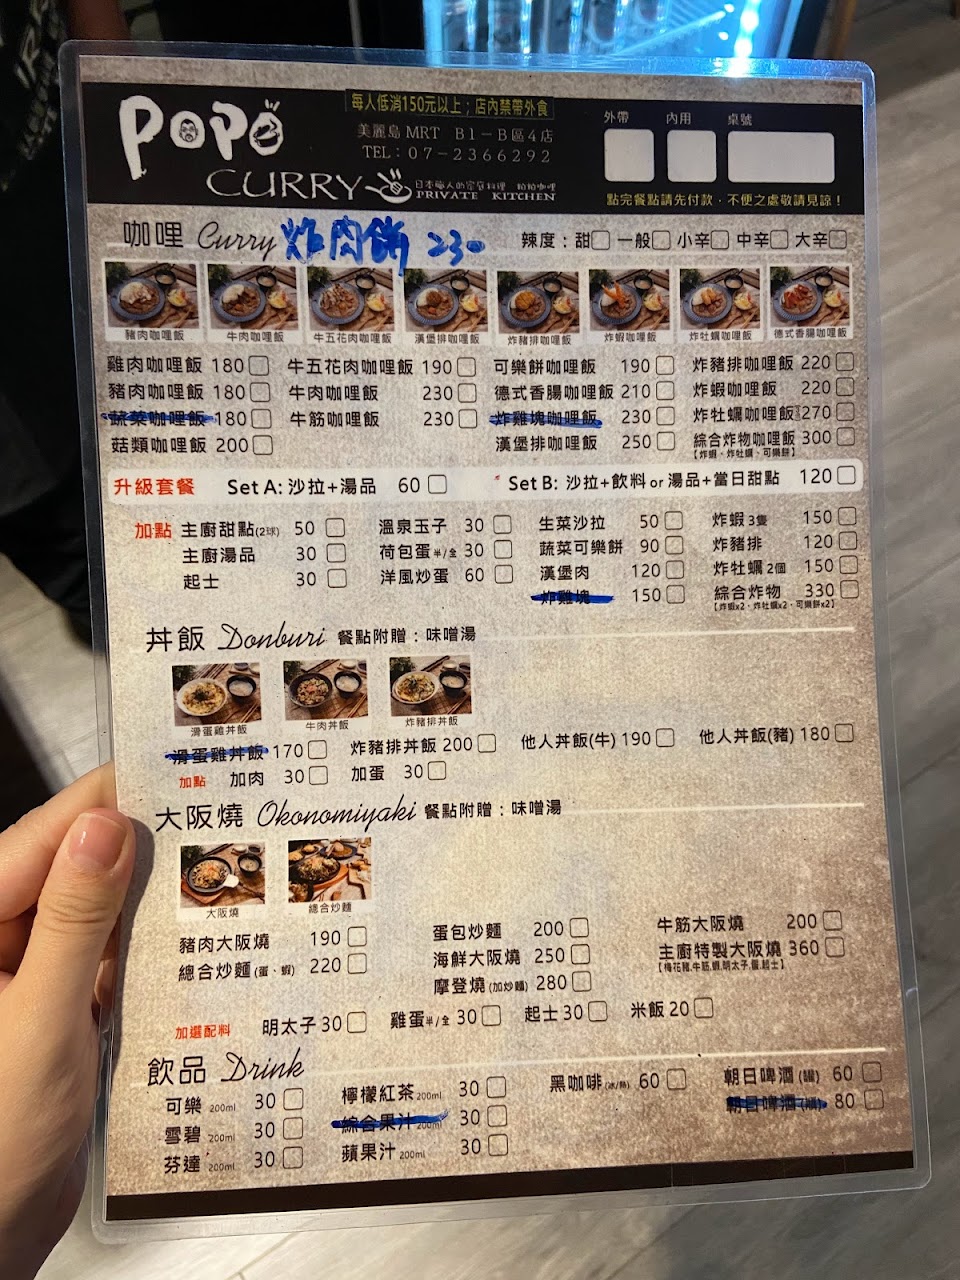 POPO
CURRY
每人低消150元以上；店內禁帶外食
美麗島 MRT B1－B區4店
TEL：07－2366292
日本職人的家庭料理 粕粕咖哩
PRIVATE KITCHEN
外帶 內用 桌號
點完餐點請先付款，不便之處敬請見諒！
咖哩 Curry 炸肉餅 230- 辣度：甜 一般 小辛 中辛 大辛
豬肉咖哩飯 牛肉咖哩飯 牛五花肉咖哩飯 漢堡排咖哩飯 炸豬排咖哩飯 炸蝦咖哩飯 炸牡蠣咖哩飯 德式香腸咖哩飯
雞肉咖哩飯 180 牛五花肉咖哩飯 190 可樂餅咖哩飯 190 炸豬排咖哩飯 220
豬肉咖哩飯 180 牛肉咖哩飯 230 德式香腸咖哩飯 210 炸蝦咖哩飯 220
蔬菜咖哩飯 180 牛筋咖哩飯 230 炸雞塊咖哩飯 230 炸牡蠣咖哩飯 270
菇類咖哩飯 200 漢堡排咖哩飯 250 綜合炸物咖哩飯 300
【炸蝦、炸牡蠣、可樂餅】
升級套餐 Set A: 沙拉+湯品 60 Set B: 沙拉+飲料 or 湯品+當日甜點 120
加點 主廚甜點(2球) 50 溫泉玉子 30 生菜沙拉 50 炸蝦 3隻 150
主廚湯品 30 荷包蛋 半/全 30 蔬菜可樂餅 90 炸豬排 120
起士 30 洋風炒蛋 60 漢堡肉 120 炸牡蠣 2個 150
炸雞塊 150 綜合炸物 330
【炸蝦x2、炸牡蠣x2、可樂餅x2】
丼飯 Donburi 餐點附贈：味噌湯
滑蛋雞丼飯 牛肉丼飯 炸豬排丼飯
滑蛋雞丼飯 170 炸豬排丼飯 200 他人丼飯(牛) 190 他人丼飯(豬) 180
加點 加肉 30 加蛋 30
大阪燒 Okonomiyaki 餐點附贈：味噌湯
大阪燒 總合炒麵
豬肉大阪燒 190 蛋包炒麵 200 牛筋大阪燒 200
總合炒麵(蛋、蝦) 220 海鮮大阪燒 250 主廚特製大阪燒 360
摩登燒(加炒麵) 280 【梅花豬.牛筋.蝦.明太子.蛋.起士】
加選配料 明太子 30 雞蛋半/全 30 起士 30 米飯 20
飲品 Drink
可樂 200ml 30 檸檬紅茶 200ml 30 黑咖啡(冰/熱) 60 朝日啤酒(罐) 60
雪碧 200ml 30 綜合果汁 200ml 30 朝日啤酒 80
芬達 200ml 30 蘋果汁 200ml 30